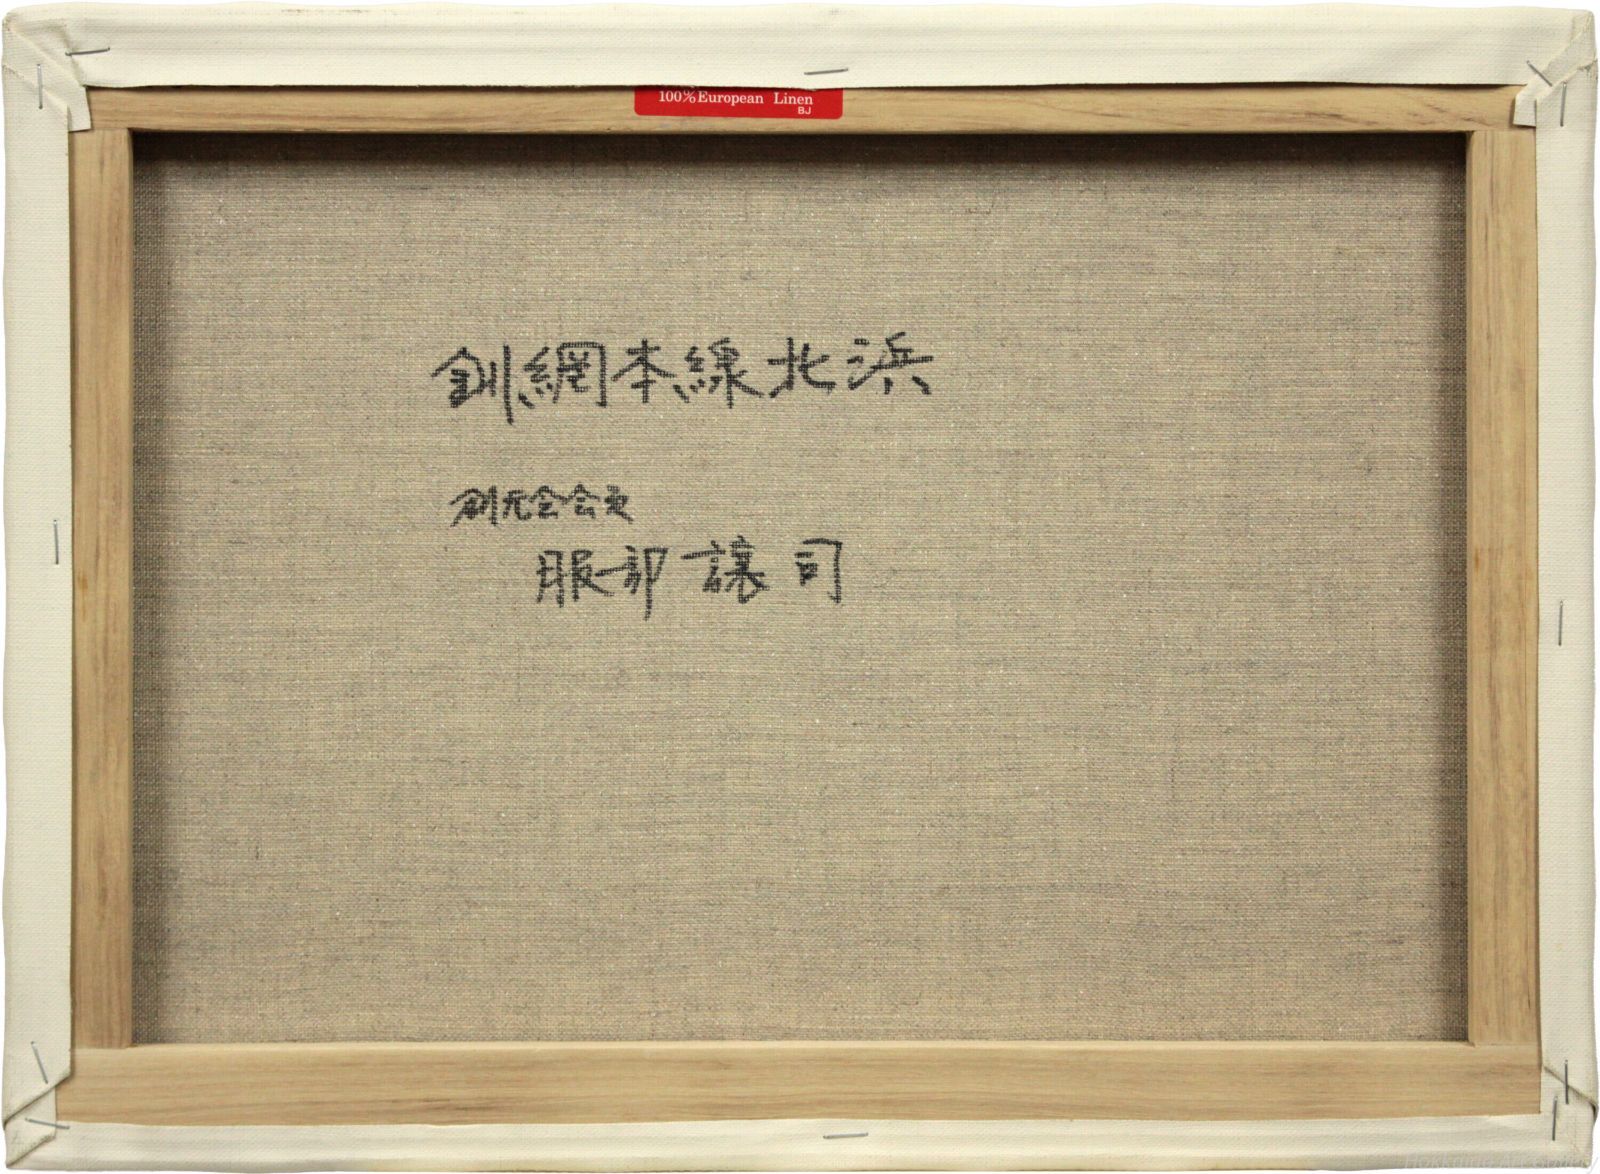 100%European Linen
BJ
釧網本線北浜
創元会会員
服部譲司